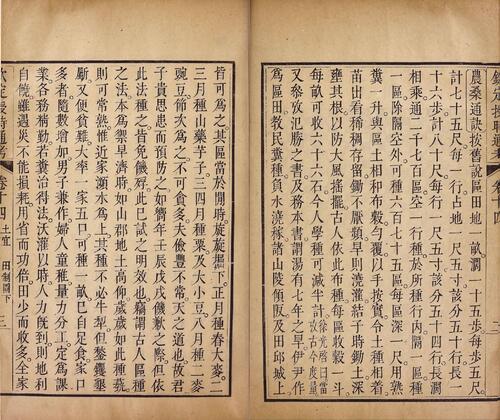 欽定授時通考
農桑通訣按舊說區田地一畝闊一十五步每步五尺
計七十五尺每一行占地一尺五寸該分五十行長一
十六步計八十尺每行一尺五寸該分五十四行長闊
相乘通二千七百區空一行種於所種行內隔一區種
一區除隔空外可種六百七十五區每區深一尺用熟
糞一升與區土相和布穀勻覆以手按實令土種相着
苗出看稀稠存留鋤不厭頻旱則澆灌結子時鋤土深
壅其根以防大風搖擺古人依此布種每區收穀一斗
每畝可收六十六石今人學種可減半計徐光啟曰當故古今度量
又參攷氾勝之書及務本書謂湯有七年之旱伊尹作
為區田教民糞種負水澆稼諸山陵傾阪及田邱城上
皆可為之其區當於閒時旋旋掘下正月種春大麥二
三月種山藥芋子三四月種粟及大小豆八月種二麥
豌豆節次為之不可貪多夫儉豐不常天之道也故君
子貴思患而預防之如嚮年壬辰戊戌饑歉之際但依
此法種之皆免餓殍此已試之明效也竊謂古人區種
之法本為禦旱濟時如山郡地土高仰歲歲如此種蓺
則可常熟惟近家瀕水為上其種不必牛犁但鍫钁墾
斸又便貧難大率一家五口可種一畝已自足食家口
多者隨數增加男子兼作婦人童稚量力分工定為課
業各務精勤若糞治得法沃灌以時人力旣到則地利
自饒雖遇災不能損耗用省而功倍田少而收多全家
欽定授時通考 卷十四 土宜 田制圖下 三